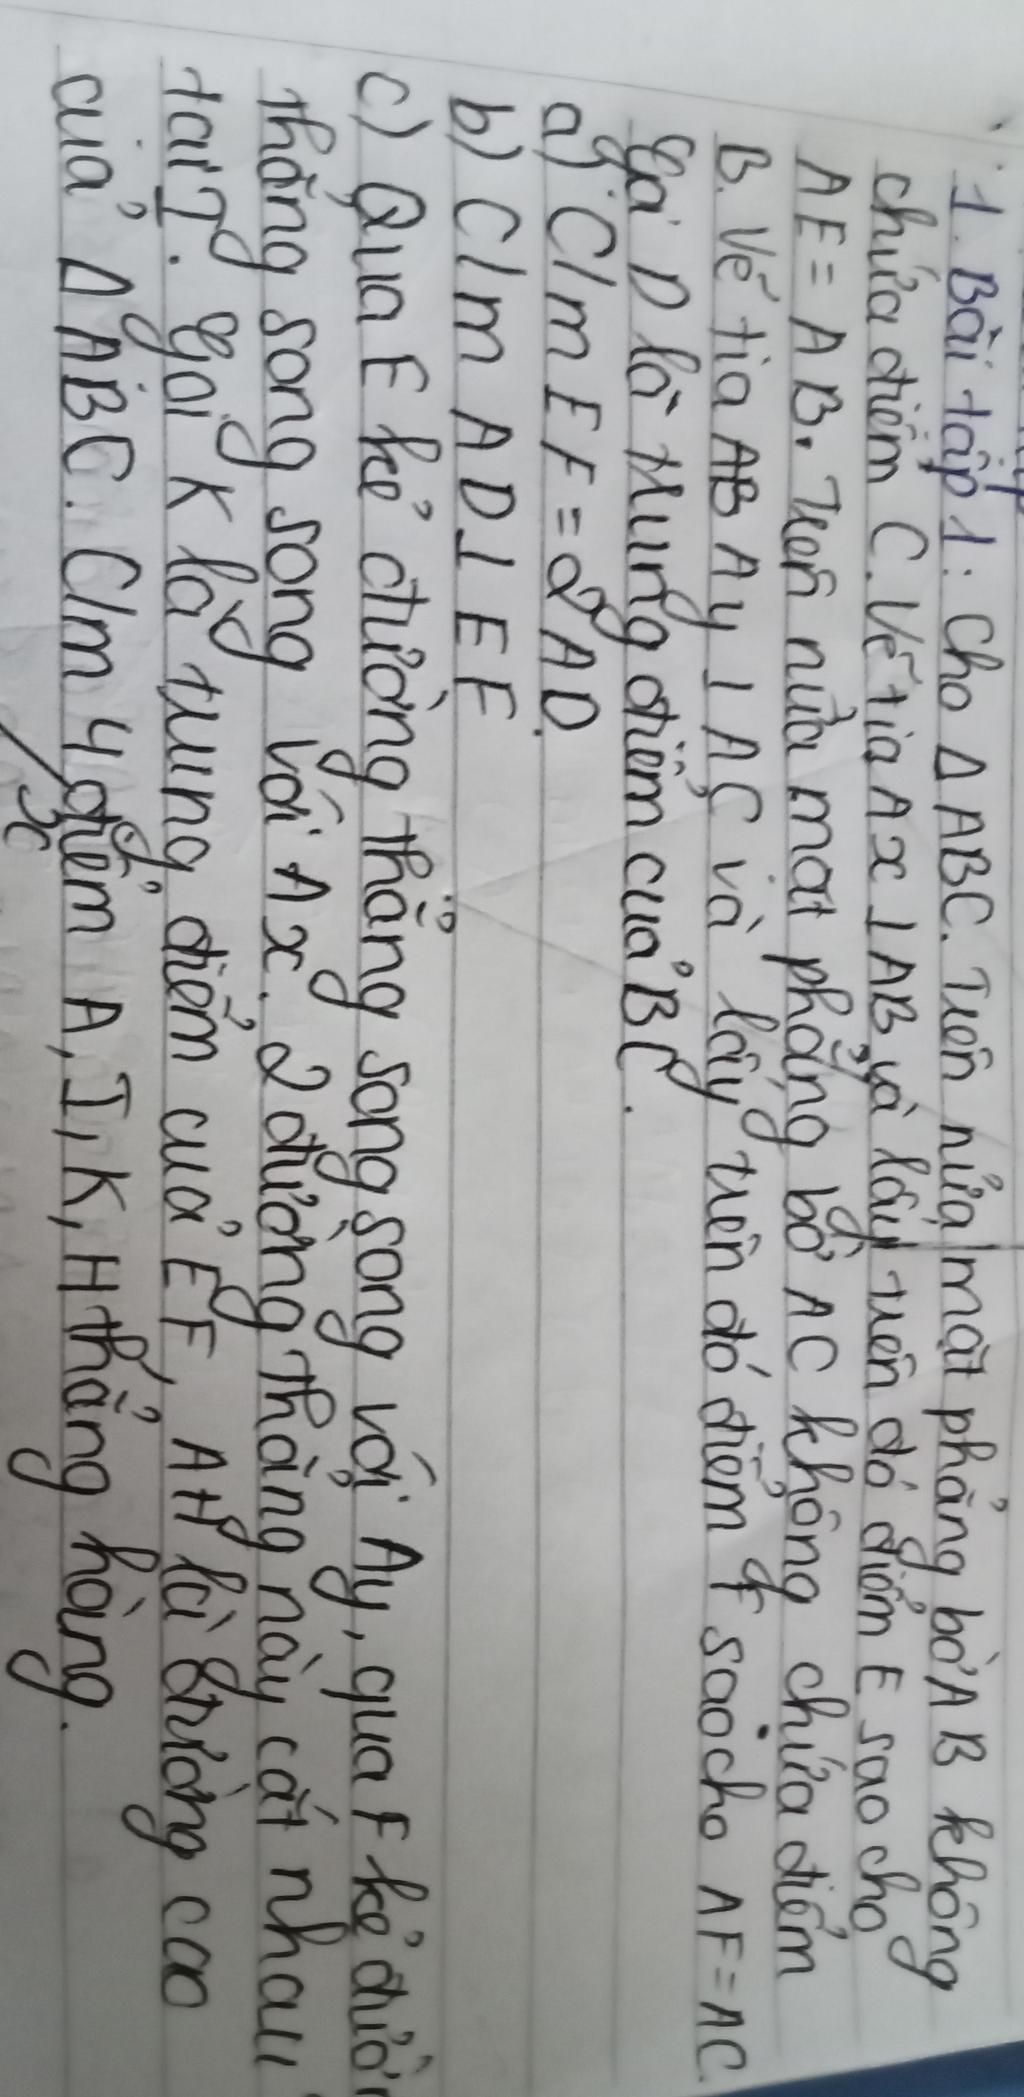 1. Bài tập 1: Cho Δ ABC. Trên nửa mặt phẳng bờ AB không
chứa điểm C. Vẽ tia Ax ⊥ AB và lấy trên đó điểm E sao cho
AE = AB. Trên nửa mặt phẳng bờ AC không chứa điểm
B. Vẽ tia AB Ay ⊥ AC và lấy trên đó điểm F sao cho AF = AC
Gọi D là trung điểm của BC.
a) C/m EF = 2 AD.
b) C/m AD ⊥ EF
c) Qua E kẻ đường thẳng song song với Ay, qua F kẻ đườn
thẳng song song với Ax. 2 đường thẳng này cắt nhau
tại I. Gọi K là trung điểm của EF, AH là đường cao
của Δ ABC. C/m 4 điểm A, I, K, H thẳng hàng.
x